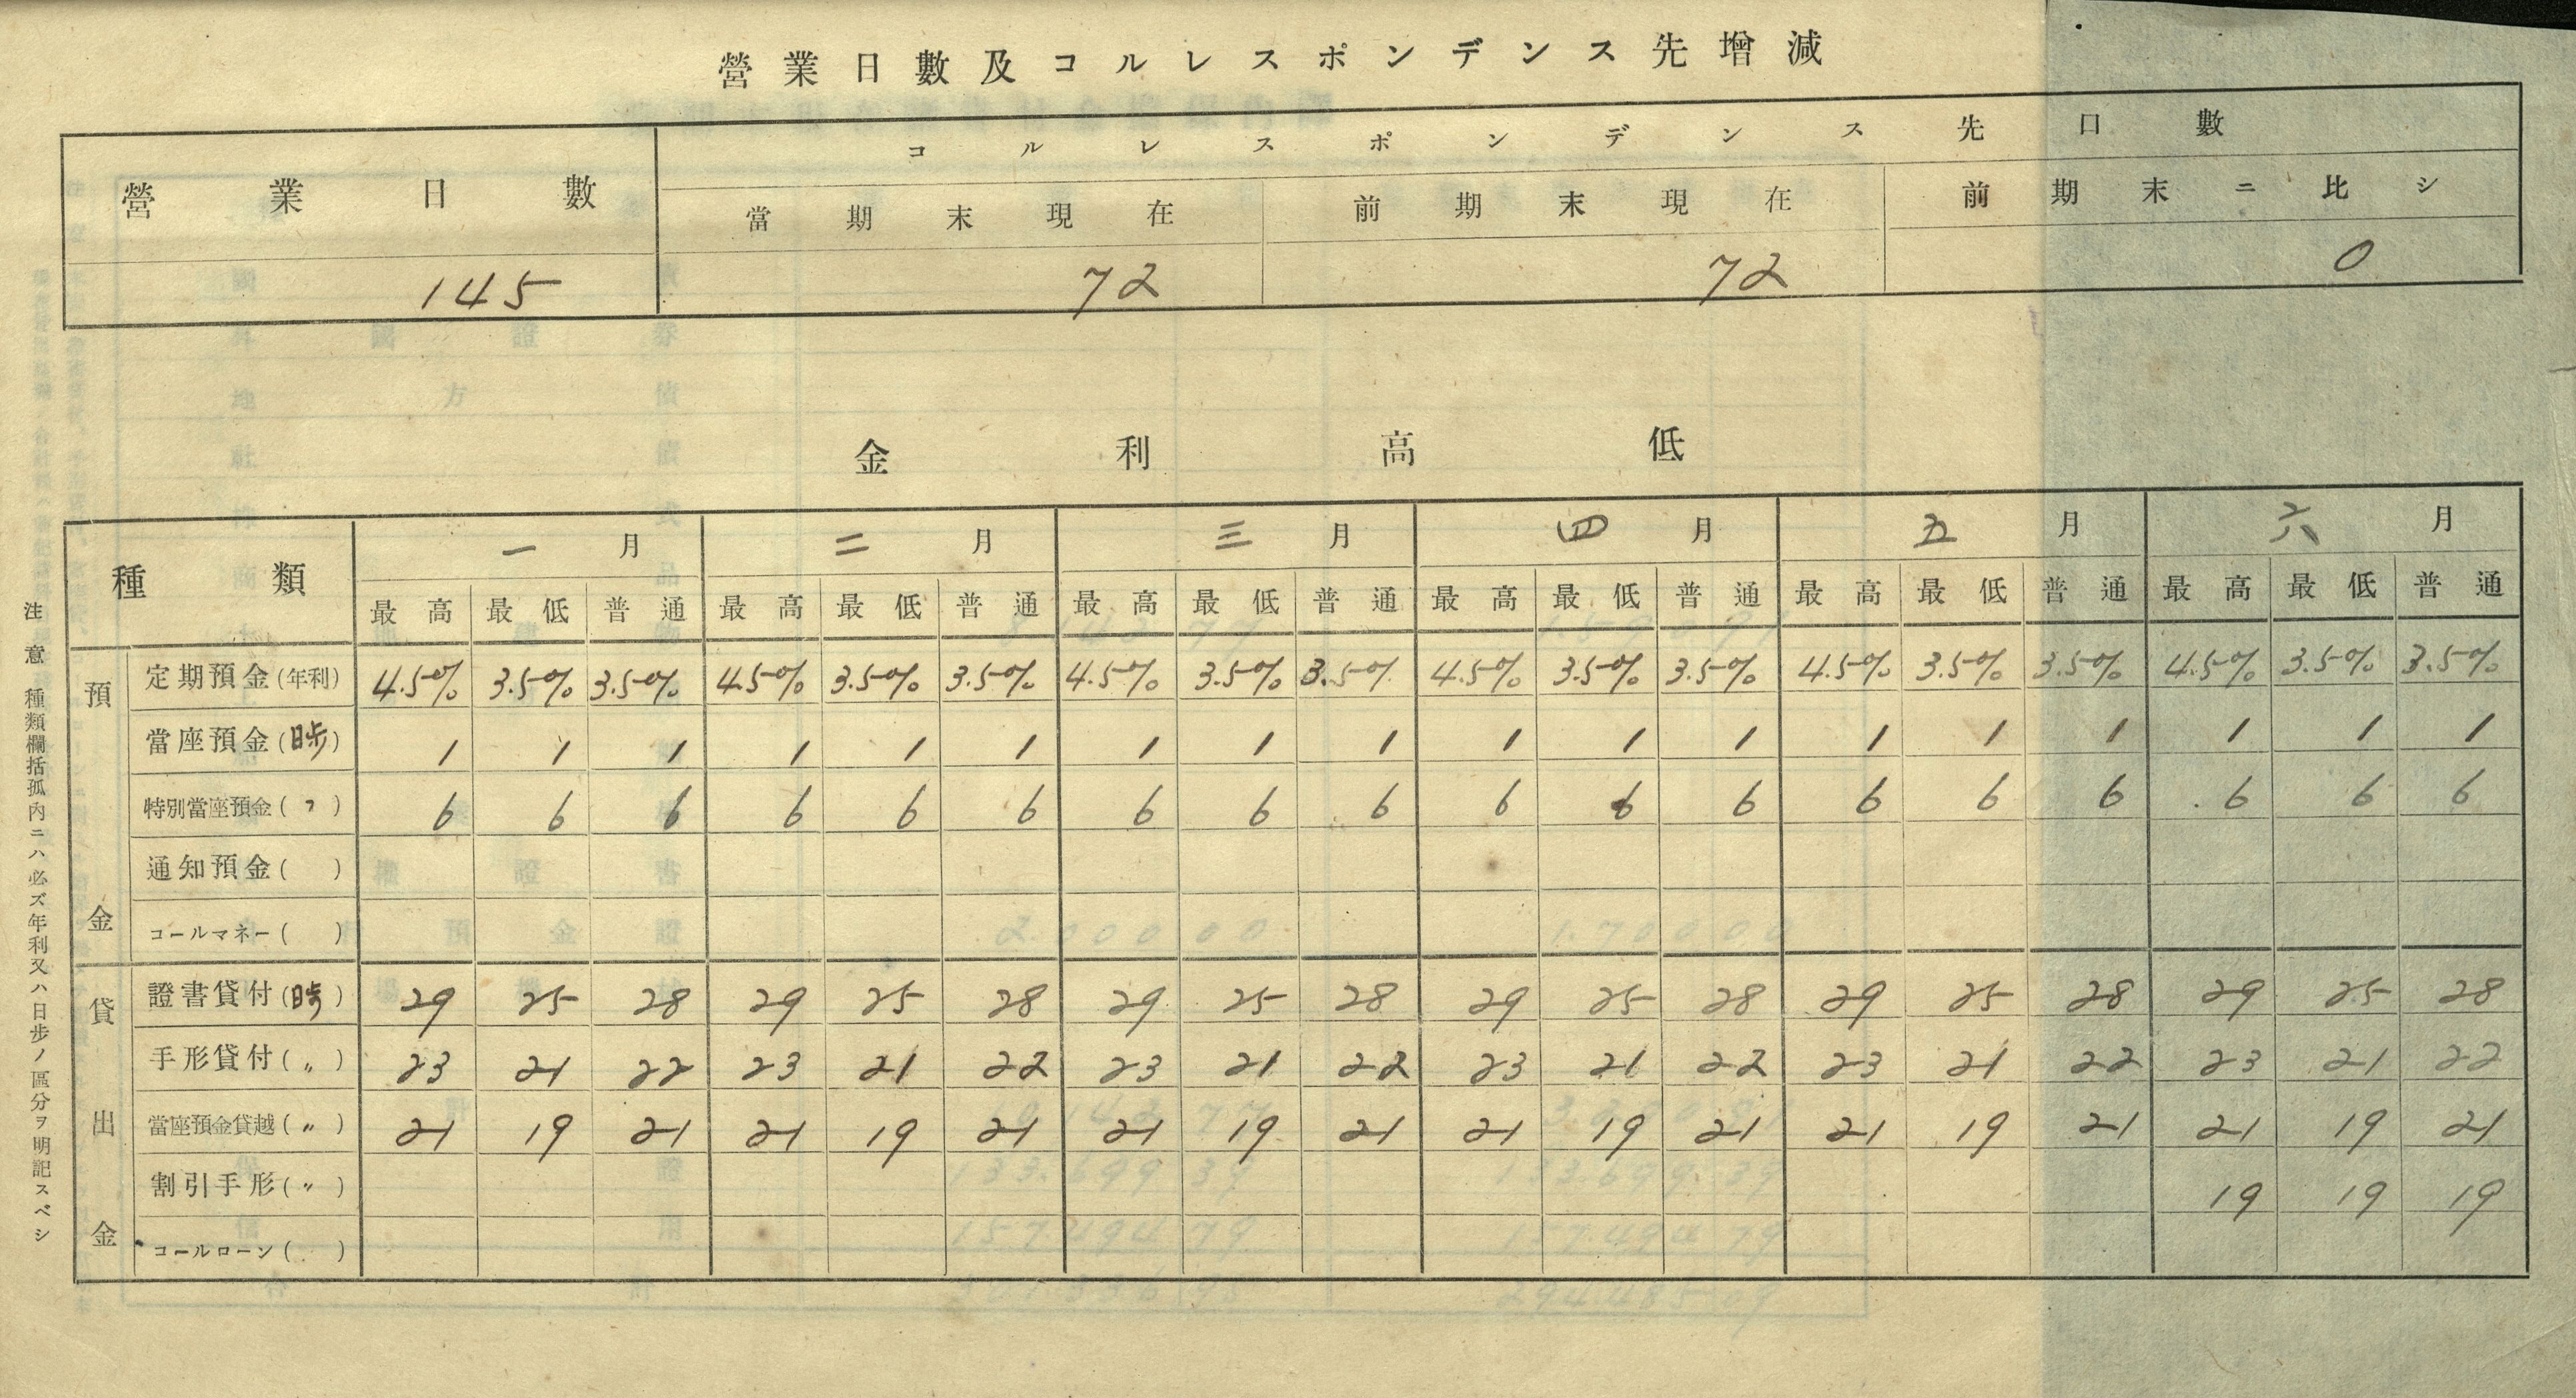 營業日數及コルレスポンデンス先增減
營業日數 コルレスポンデンス先口數
當期末現在 前期末現在 前期末ニ比シ
145 72 72 0
金利高低
種類 一月 二月 三月 四月 五月 六月
最高 最低 普通 最高 最低 普通 最高 最低 普通 最高 最低 普通 最高 最低 普通 最高 最低 普通
預金
定期預金(年利) 4.5% 3.5% 3.5% 4.5% 3.5% 3.5% 4.5% 3.5% 3.5% 4.5% 3.5% 3.5% 4.5% 3.5% 3.5% 4.5% 3.5% 3.5%
當座預金(日歩) 1 1 1 1 1 1 1 1 1 1 1 1 1 1 1 1 1 1
特別當座預金(〃) 6 6 6 6 6 6 6 6 6 6 6 6 6 6 6 6 6 6
通知預金( )
コールマネー( )
貸出金
證書貸付(日歩) 29 25 28 29 25 28 29 25 28 29 25 28 29 25 28 29 25 28
手形貸付(〃) 23 21 22 23 21 22 23 21 22 23 21 22 23 21 22 23 21 22
當座預金貸越(〃) 21 19 21 21 19 21 21 19 21 21 19 21 21 19 21 21 19 21
割引手形(〃) 19 19 19
コールローン( )
注意 種類欄括孤内ニハ必ズ年利又ハ日步ノ區分ヲ明記スベシ